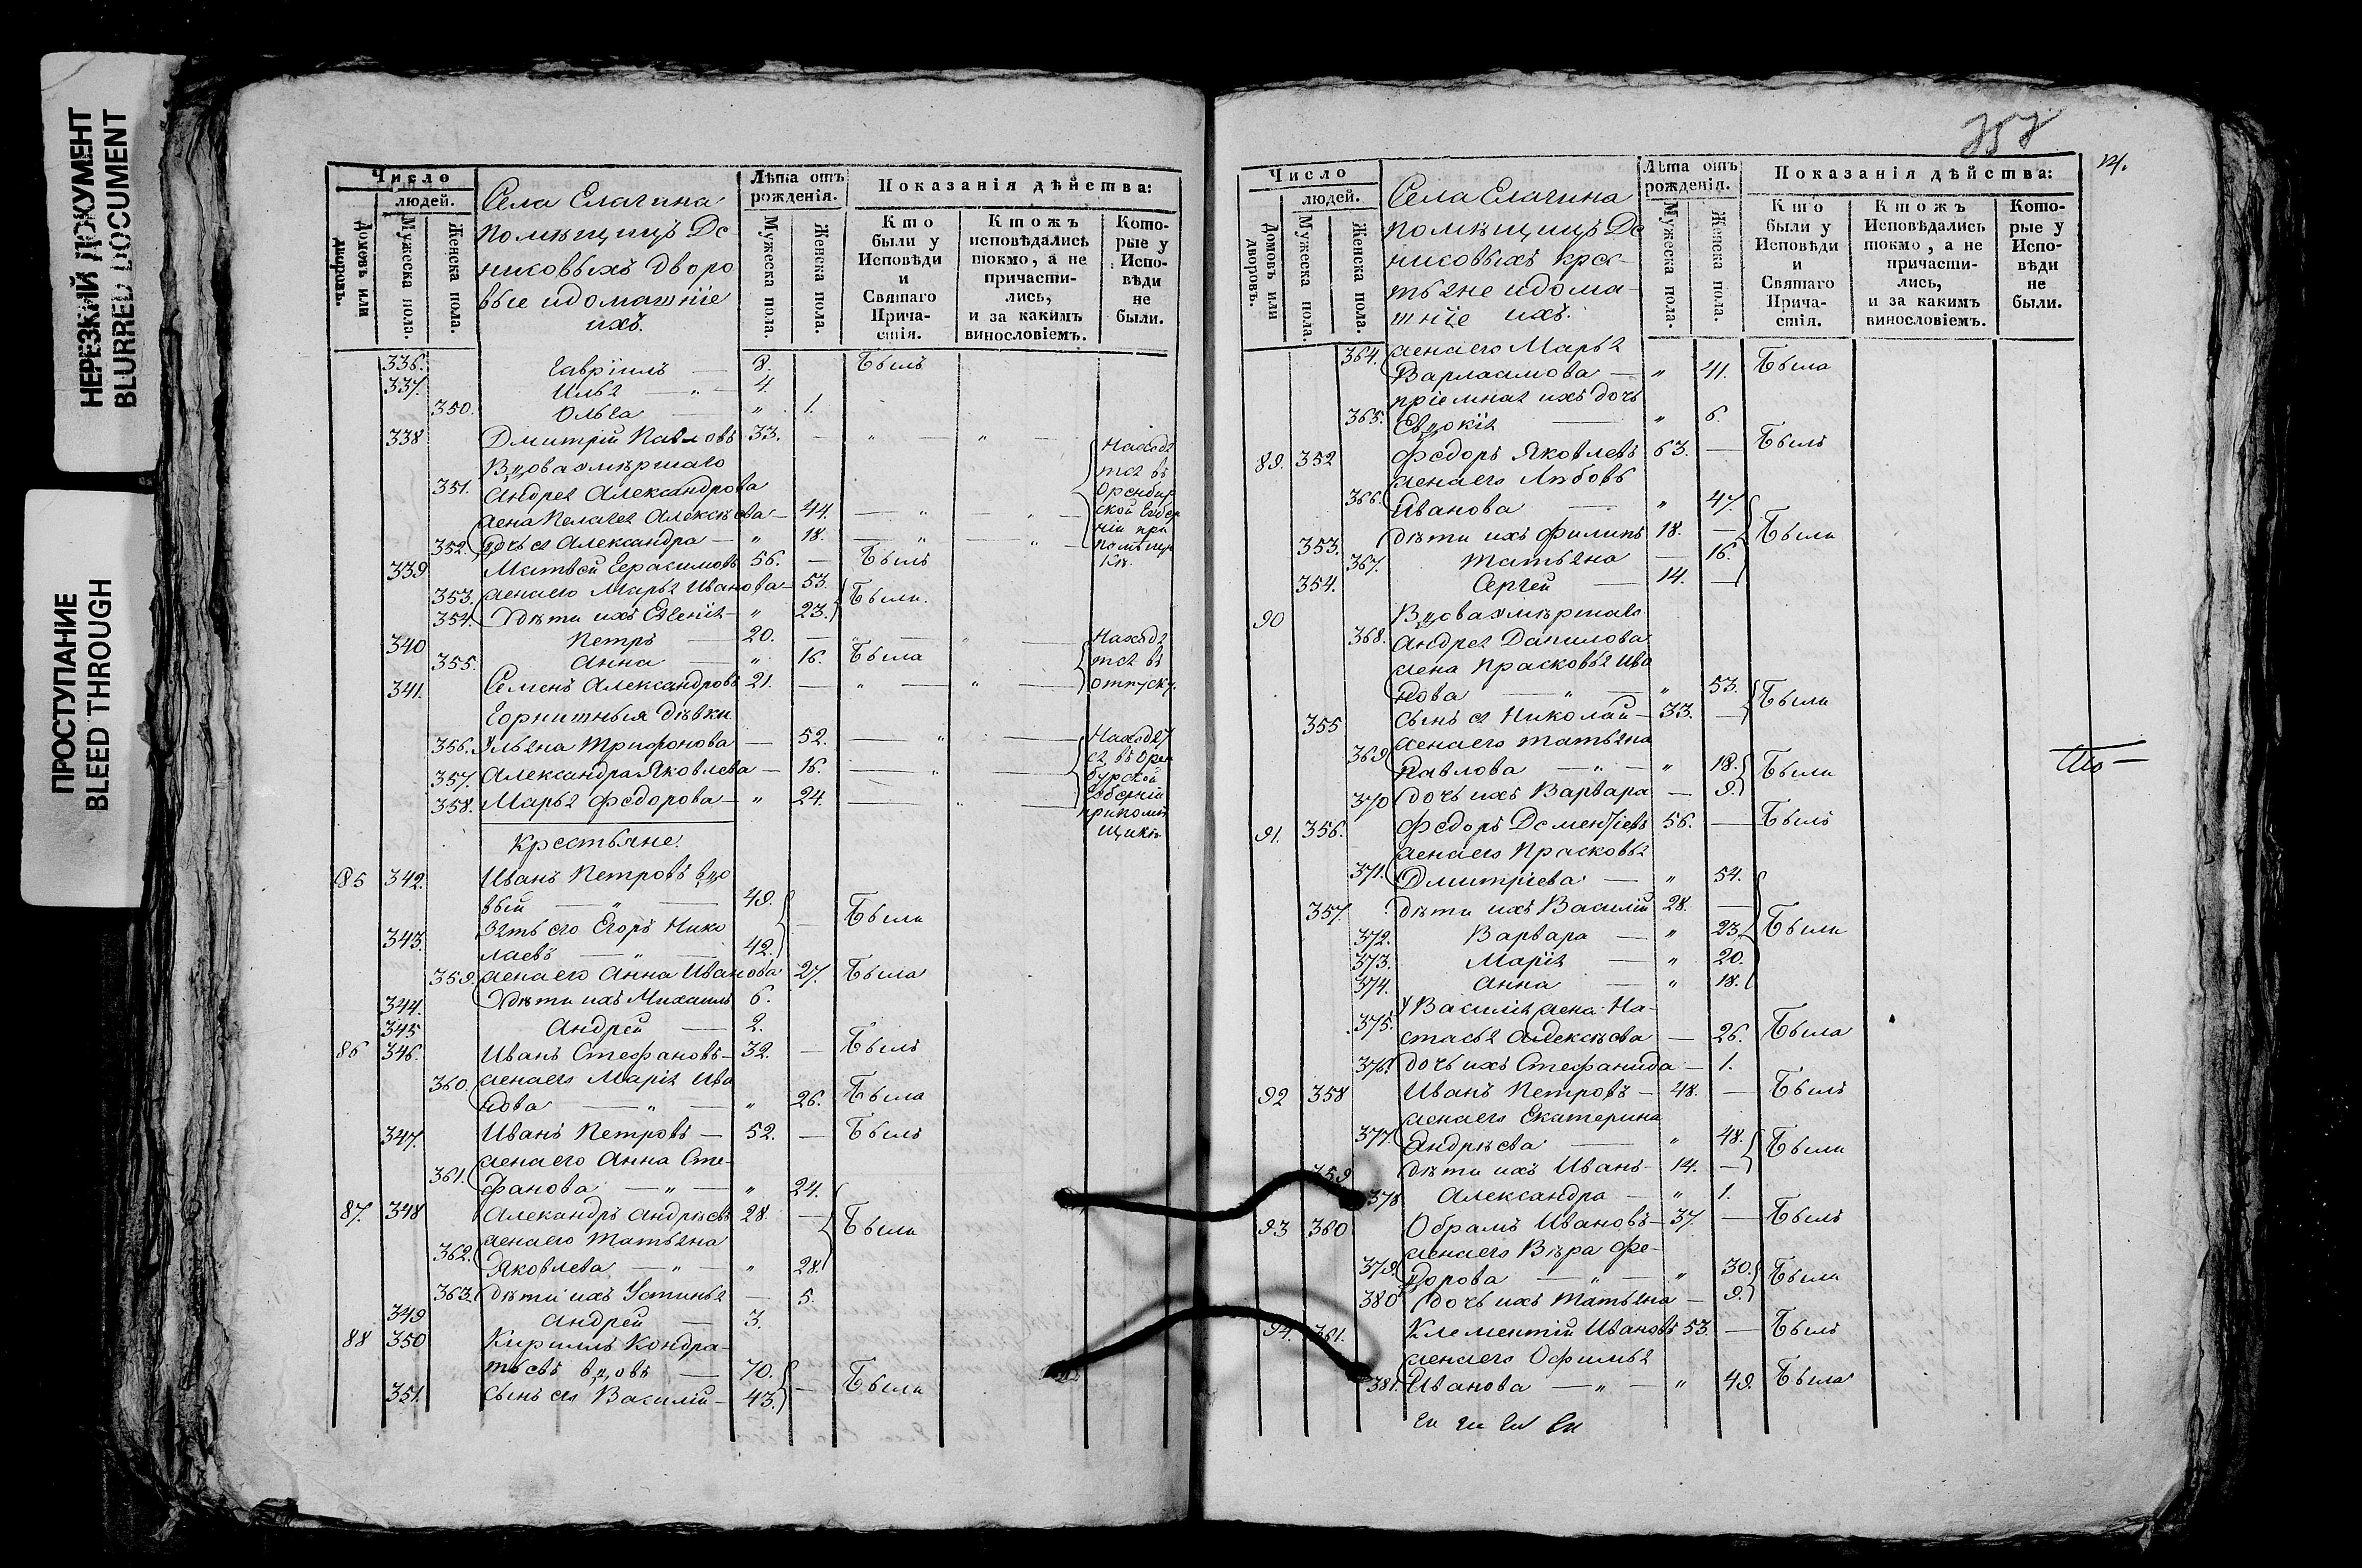 НЕРЕЗКИЙ ДОКУМЕНТ
BLURRED DOCUMENT
ПРОСТУПАНИЕ
BLEED THROUGH
Число
людей.
Домовъ или дворовъ.
Мужеска пола
Женска пола.
Села Елагина
помѣщицъ Де
никовыхъ дворо
вые и домашніе
ихъ.
Лѣта отъ рожденія.
Мужеска пола.
Женска пола.
Показанія дѣйства:
Кто были у Исповѣди и Святаго Причастія.
Ктожъ исповѣдались токмо, а не причастились, и за какимъ винословіемъ.
Которые у Исповѣди не были.
336. Гавріилъ — 8. Былъ
337. Илья — „ — 4.
350. Ольга — „ 1.
338 Дмитрій Павловъ 33. — „ — „ —
Вдова умѣршаго
351. Андрея Александрова
жена Пелагея Алексѣева — 44. — „ — „ —
352. дочь ея Александра — „ 18. — „ — „ —
Находя
тся въ
Оренбур
ской Губер
ніи при
помѣщи
кѣ.
339 Матвей Герасимовъ 56. — Былъ
353. жена его Марья Иванова — 53.
354. Дѣти ихъ Евгенія — „ 23. Были.
340 Петръ — 20. — „ — „ —
355. Анна — „ 16. Была
341. Семенъ Александровъ 21. — „ — „ —
Находя
тся въ
отпуску.
Горнишныя дѣвки
356. Ульяна Трифонова — 52. — „ —
357. Александра Яковлева — 16. — „ —
358. Марья Федорова — „ 24. — „ —
Находят
ся въ Орен
бурской
Губерніи
при помѣ
щикѣ
Крестьяне.
85 342. Иванъ Петровъ вдо
вый — „ — 49.
343. Зять его Егоръ Нико
лаевъ — „ — 42. — Были
359. жена его Анна Иванова 27. Была
344. Дѣти ихъ Михаилъ 6.
345 Андрей — 2.
86 346. Иванъ Стефановъ — 32. — Былъ
360. жена его Марія Ива
нова — „ — „ 26. Была
347. Иванъ Петровъ — 52. — Былъ
361. жена его Анна Сте-
фанова — „ — „ 24.
87. 348 Алекандръ Андрѣевъ 28 — Были
362. жена его Татьяна
Яковлева — „ — „ 28.
363. Дѣти ихъ Устинья — 5.
349 Андрей — 3.
88 350 Кириллъ Кондра-
тьевъ вдовъ — 70.
351. Сынъ его Василій — 43. — Были
14.
Число
людей.
Домовъ или дворовъ.
Мужеска пола.
Женска пола.
Села Елагина
помѣщицъ Де
никовыхъ крес-
тьяне и дома-
шніе ихъ.
Лѣта отъ рожденія.
Мужеска пола.
Женска пола.
Показанія дѣйства:
Кто были у Исповѣди и Святаго Причастія.
Ктожъ Исповѣдались токмо, а не причастились, и за какимъ винословіемъ.
Которые у Исповѣди не были.
364. жена его Марья
Варлаамова — „ 41. Была
пріемная ихъ дочь
365. Евдокія — „ 6.
89. 352 Федоръ Яковлевъ 63. — Былъ
жена его Любовь
366. Иванова — „ 47.
353. Дѣти ихъ Филипъ 18. — Были
367. Татьяна — 16.
354. Сергей — 14. —
90 Вдова умѣршаго
368. Андрея Данилова
жена Прасковья Ива
нова — „ — „ 53. Были
355 Сынъ ея Николай — 33. —
жена его Татьяна
369 Павлова — „ — „ 18. Были
370 дочь ихъ Варвара — 9.
91. 356. Федоръ Дементіевъ 56. — Былъ
жена его Прасковья
371. Дмитріева — „ 54.
357. Дѣти ихъ Василій 28. —
372. Варвара — „ 23. Были
373. Марія — „ 20.
374. Анна — „ 18.
375. У Василія жена На-
стасья Алексѣева — 26. Была
376. дочь ихъ Стефанида — 1.
92 358 Иванъ Петровъ — 48. — Былъ
жена его Екатерина
377. Андрѣева — „ 48. Были
359 Дѣти ихъ Иванъ — 14. —
378 Александра — „ 1.
93 360 Обрамъ Ивановъ — 37. — Былъ
жена его Вѣра Фе-
379. дорова — „ — „ 30. Были
380 дочь ихъ Татьяна — 9.
94. 361. Клементій Ивановъ 53. — Былъ
жена его Офимья
381. Иванова — „ — „ 49. Была